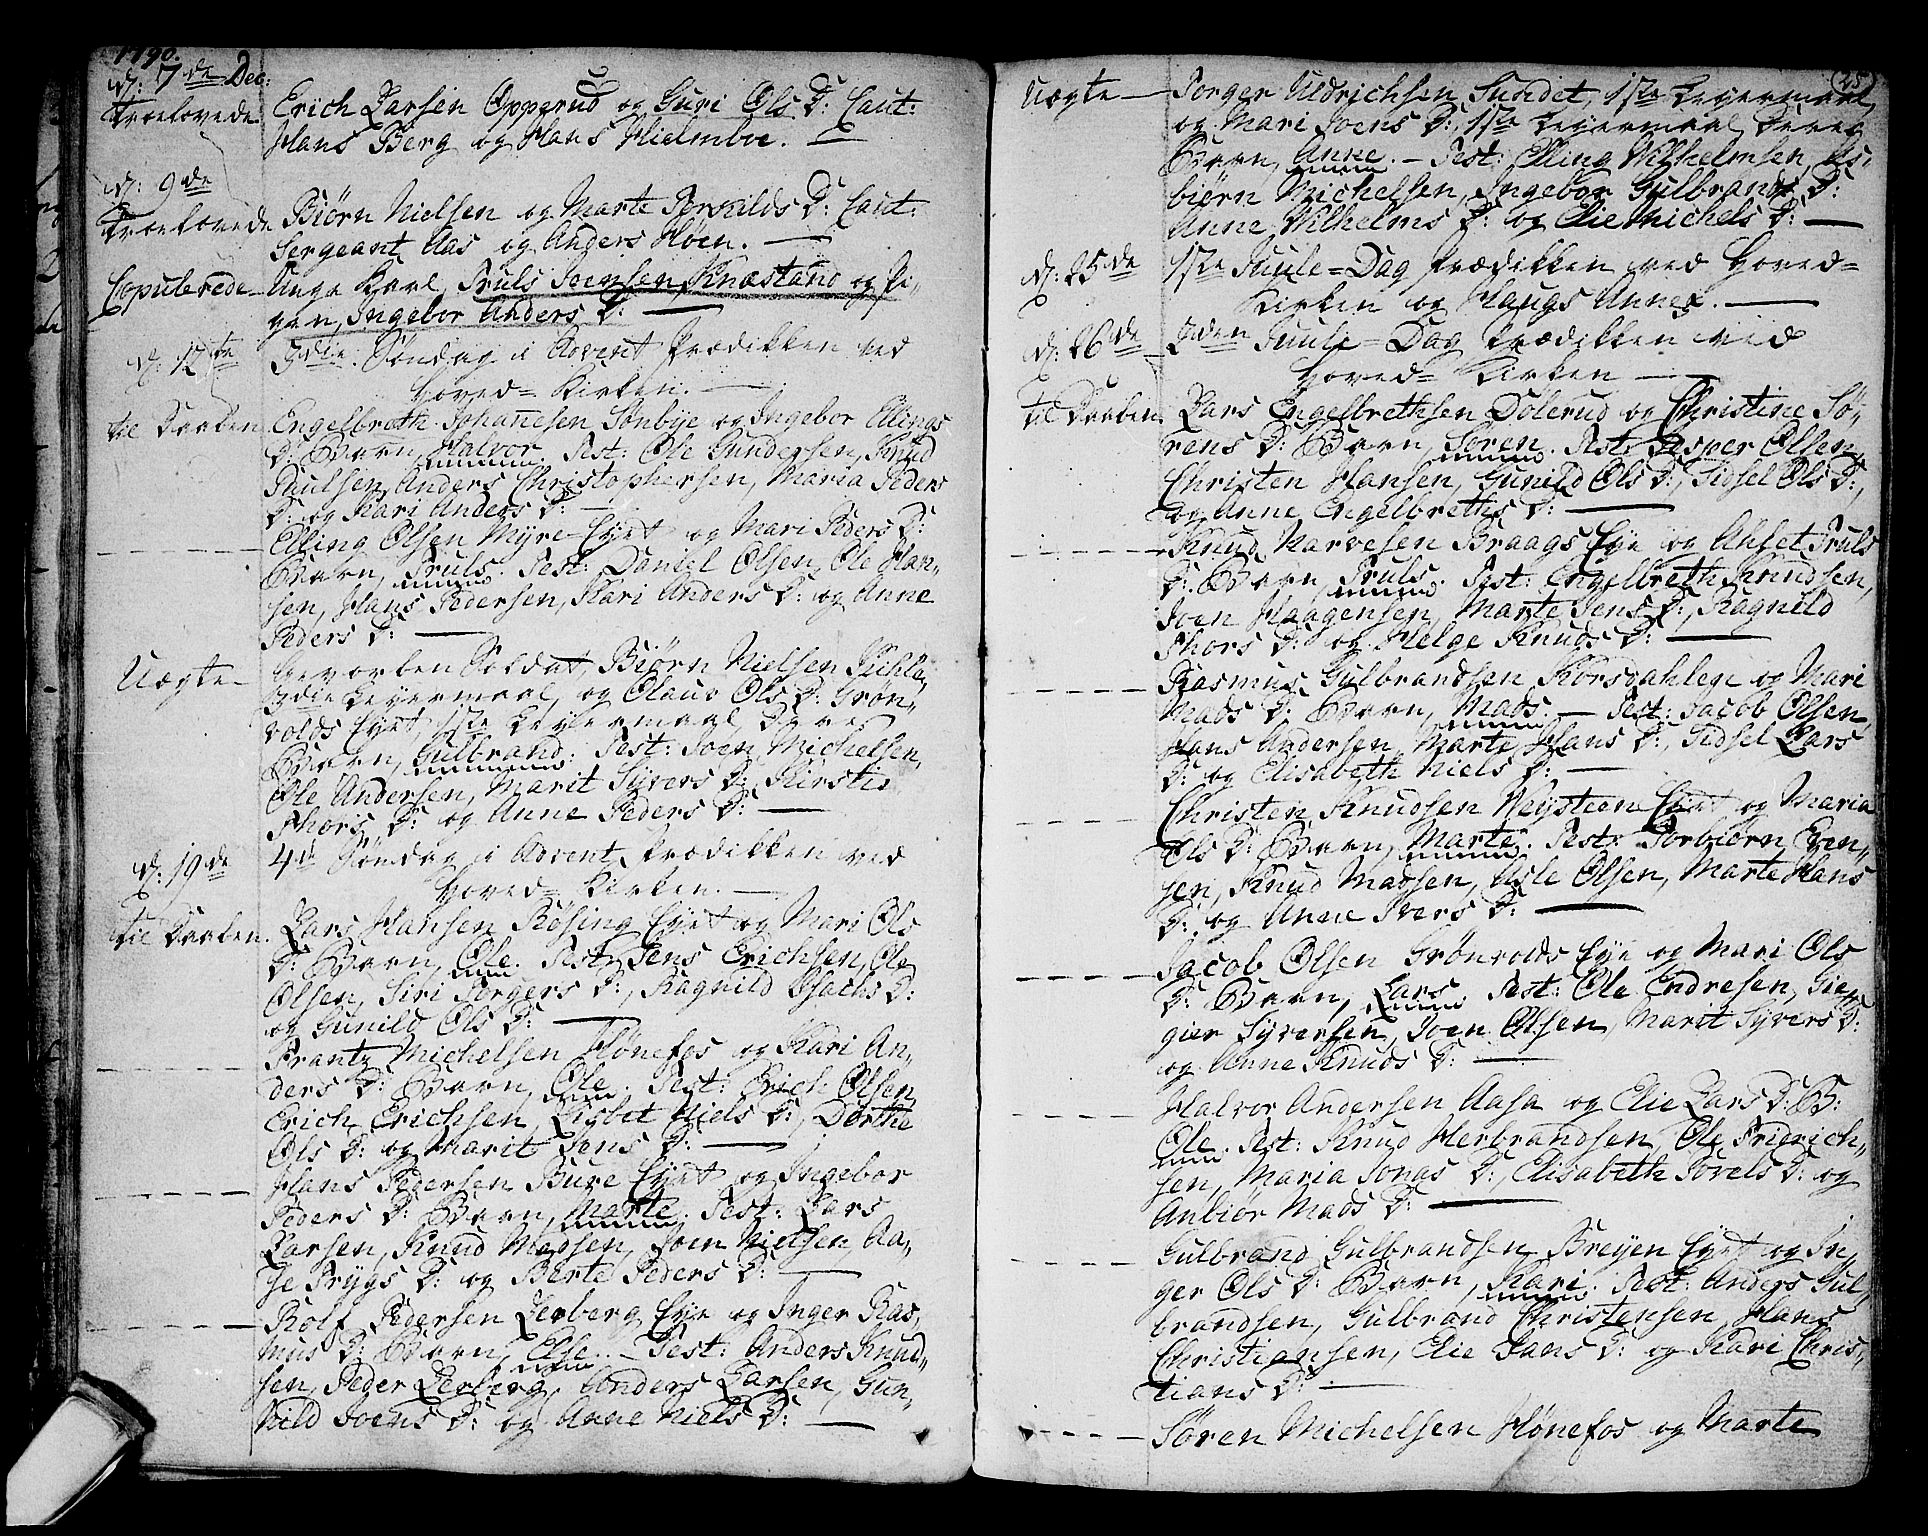 1790.
d: 7de Dec:
Troelovede Erich Larsen Opperud og Guri Ols D: Caut:
Hans Berg og Hans Hielmboe.
d: 9de
Troelovede Biørn Nielsen og Marte Torvilds D: Caut:
Sergeant Aas og Anders Høen.
Copulerede Unge Karl, Truls Joensen Knæstand og Pi-
gen, Ingebor Anders D:
d: 12te 3die Søndag i Advent Prædikken ved
Hoved-Kirken.
til Daaben Engelbreth Johannesen Sonbye og Ingebor Ellings
D: Barn, Halvor. Test: Ole Gundersen, Knud
Paulsen, Anders Christophersen, Maria Peders
D: og Kari Anders D:
Elling Olsen Myre Eyet og Mari Peders D:
Barn, Truls. Test: Daniel Olsen, Ole Han-
sen, Hans Pedersen, Kari Anders D: og Anne
Peders D:
Uægte Gevorben Soldat, Biørn Nielsen
3die Leyermaal, og Olaug Ols D: Grøn-
volds Eyet 1ste Leyermaal Deres
Barn, Gulbrand. Test: Joen Michelsen,
Ole Andersen, Marit Syvers D: Kirsti
Thors D: og Anne Peders D:
d: 19de 4de Søndag i Advent Prædikken ved
Hoved-Kirken.
til Daaben. Lars Hansen Røsing Eyet og Mari Ols
D: Barn, Ole. Test: Jens Erichsen, Ole
Olsen, Siri Torgers D:, Ragnild Isachs D:
og Gunild Ols D:
Frantz Michelsen Hønefos og Kari An-
ders D: Barn, Ole. Test: Erich Olsen,
Erich Erichsen, Lisbet Niels D:, Dorthe
Ols D: og Marit Jens D:
Hans Pedersen Bure Eyet og Ingebor
Peders D: Barn, Marte. Test: Lars
Larsen, Knud Madsen, Joen Nielsen, Aa-
se Trygs D: og Berte Peders D:
Rolf Pedersen Lerberg Eye og Inger Ras-
mus D: Barn, Else. - Test: Anders Knud-
sen, Peder Lerberg, Anders Larsen, Gun-
hild Joens D: og Anne Niels D:
(25)
Uægte Torger Uldrichsen Sundet, 1ste Leyermaal,
og Mari Joens D:, 1ste Leyermaal Deres
Barn, Anne. - Test: Elling Vilhelmsen, As-
biørn Michelsen, Ingebor Gulbrands D:
Anne Vilhelms D: og Elie Michels D:
d: 25de 1ste Juule-Dag Prædikken ved Hoved-
Kirken og Haugs Annex.
d: 26de 2den Juule-Dag Prædikken ved
Hoved-Kirken
til Daaben Lars Engelbrethsen Dølerud og Christine Sø-
rens D: Barn, Søren. Test: Jesper Olsen,
Christen Hansen, Gunild Ols D:, Sidsel Ols D:,
og Anne Engelbreths D:
Knud Narvesen Braags Eye og Ahset Truls
D: Barn, Truls. Test: Engelbreth Knudsen,
Joen Haagensen, Marte Jens D:, Ragnild
Thors D: og Helge Knuds D:
Rasmus Gulbrandsen Korsdahlen og Mari
Mads D: Barn, Mads. - Test: Jacob Olsen,
Hans Andersen, Marte Hans D:, Sidsel Lars
D: og Elisabeth Niels D:
Christen Knudsen Veysteen Eyet og Maria
Ols D: Barn, Marte. Test: Torbiørn Even-
sen, Knud Madsen, Asle Olsen, Marte Hans
D: og Anne Ivers D:
Jacob Olsen Grønvolds Eye og Mari Ols
D: Barn, Lars. Test: Ole Endresen, Giel-
gier Syversen, Joen Olsen, Marit Syvers D:
og Anne Knuds D:
Halvor Andersen Aasa og Elie Lars D: B:
Ole. Test: Knud Herbrandsen, Ole Friderich-
sen, Maria Jonas D:, Elisabeth Povels D: og
Anbiør Mads D:
Gulbrand Gulbrandsen Breyen Eyet og In-
ger Ols D: Barn, Kari. Test: Anders Gul-
brandsen, Gulbrand Christensen, Hans
Christiansen, Elie Jans D: og Kari Chris-
tians D:
Søren Michelsen Hønefos og Marte